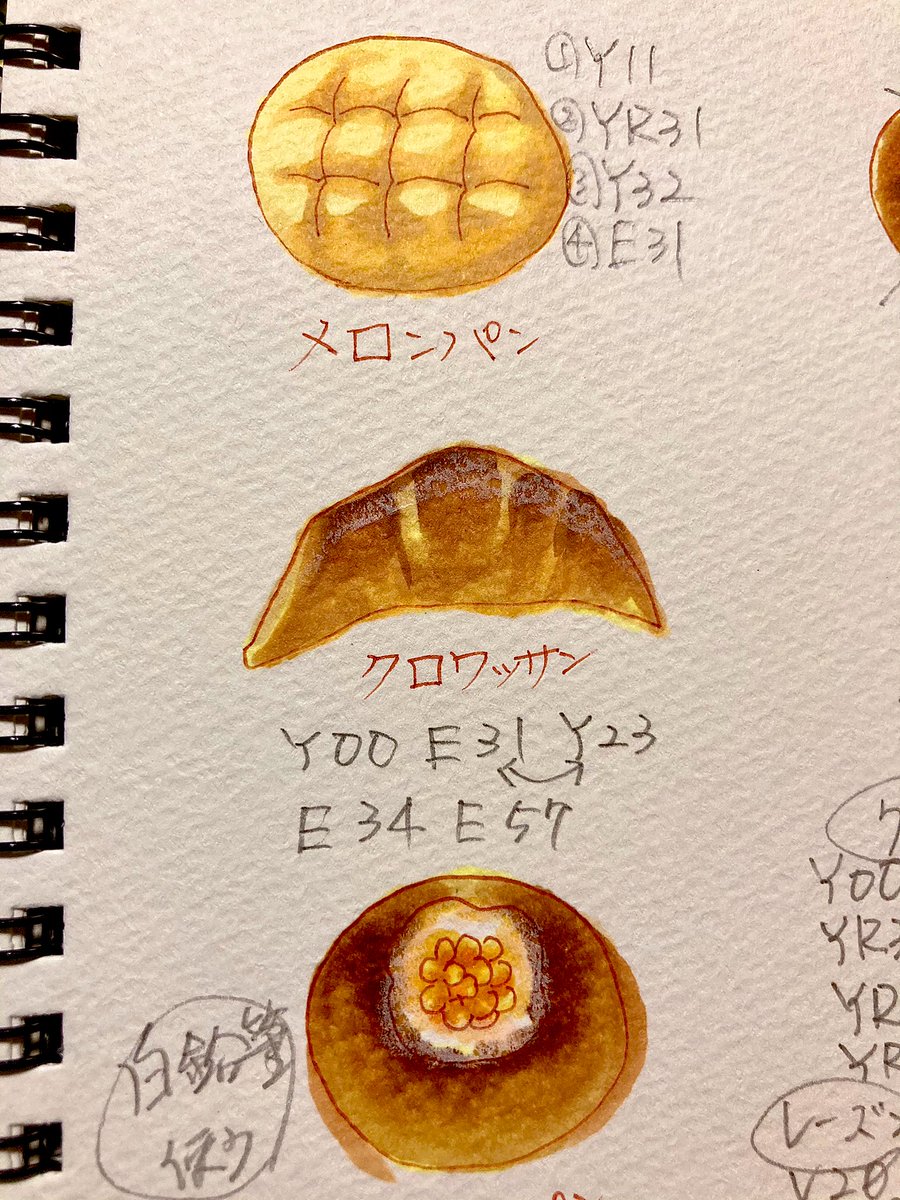 ①Y11
②YR31
③Y32
④E31
メロンパン
クロワッサン
Y00 E31 Y23
E34 E57
白鉛筆
Y00
YR3
YR
YR
レーズン
Y20